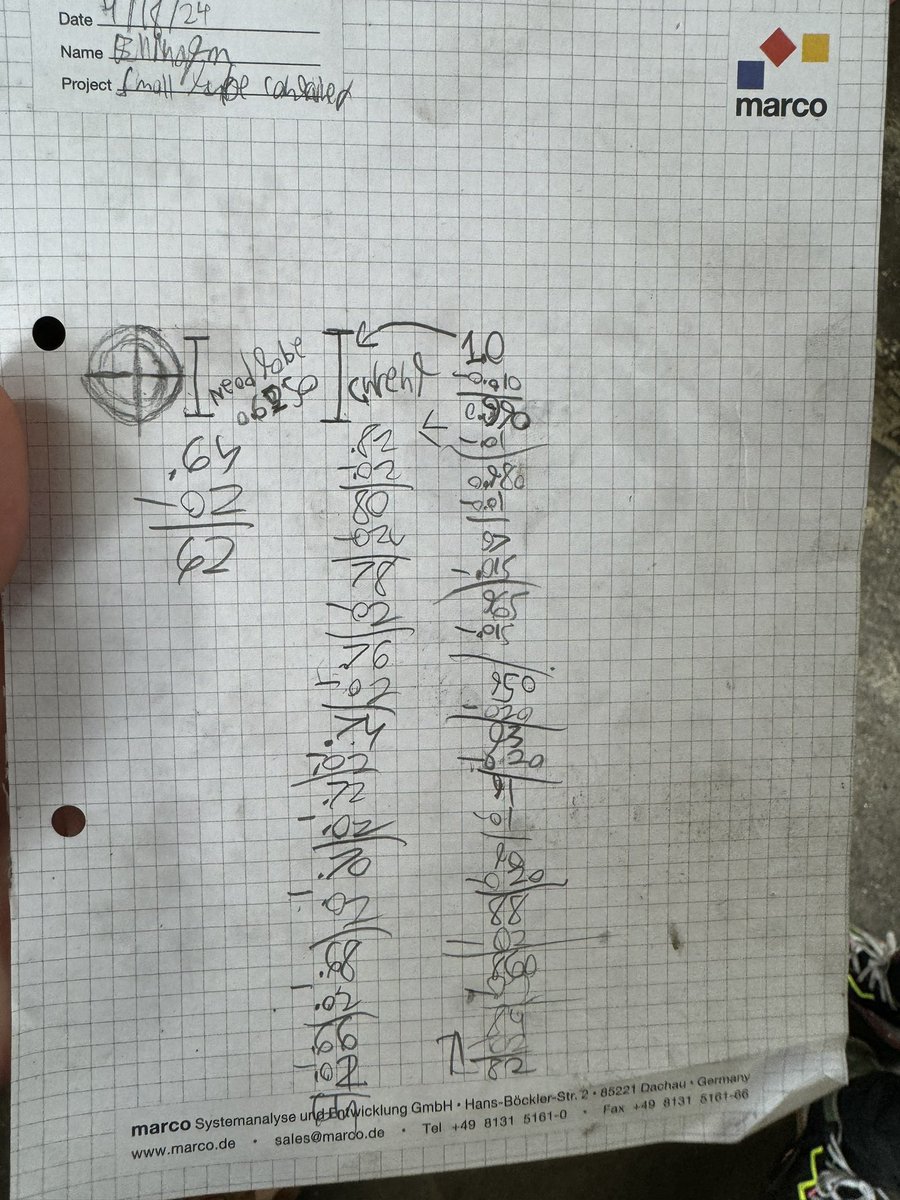 Date 9/18/24
Name Ellington
Project Small type container
marco
Need to be
0.500
Current
.64
-02
62
.82
-.02
80
-.02
78
-02
.76
-.02
.74
-.02
.72
-.02
.70
-.02
.68
-.02
66
-.02
1.0
-0.010
0.990
-.01
0.980
-0.01
97
-.015
-.015
950
-020
93
-020
90
-020
88
-02
860
82
marco Systemanalyse und Entwicklung GmbH • Hans-Böckler-Str. 2 • 85221 Dachau • Germany
www.marco.de • sales@marco.de • Tel +49 8131 5161-0 • Fax +49 8131 5161-66